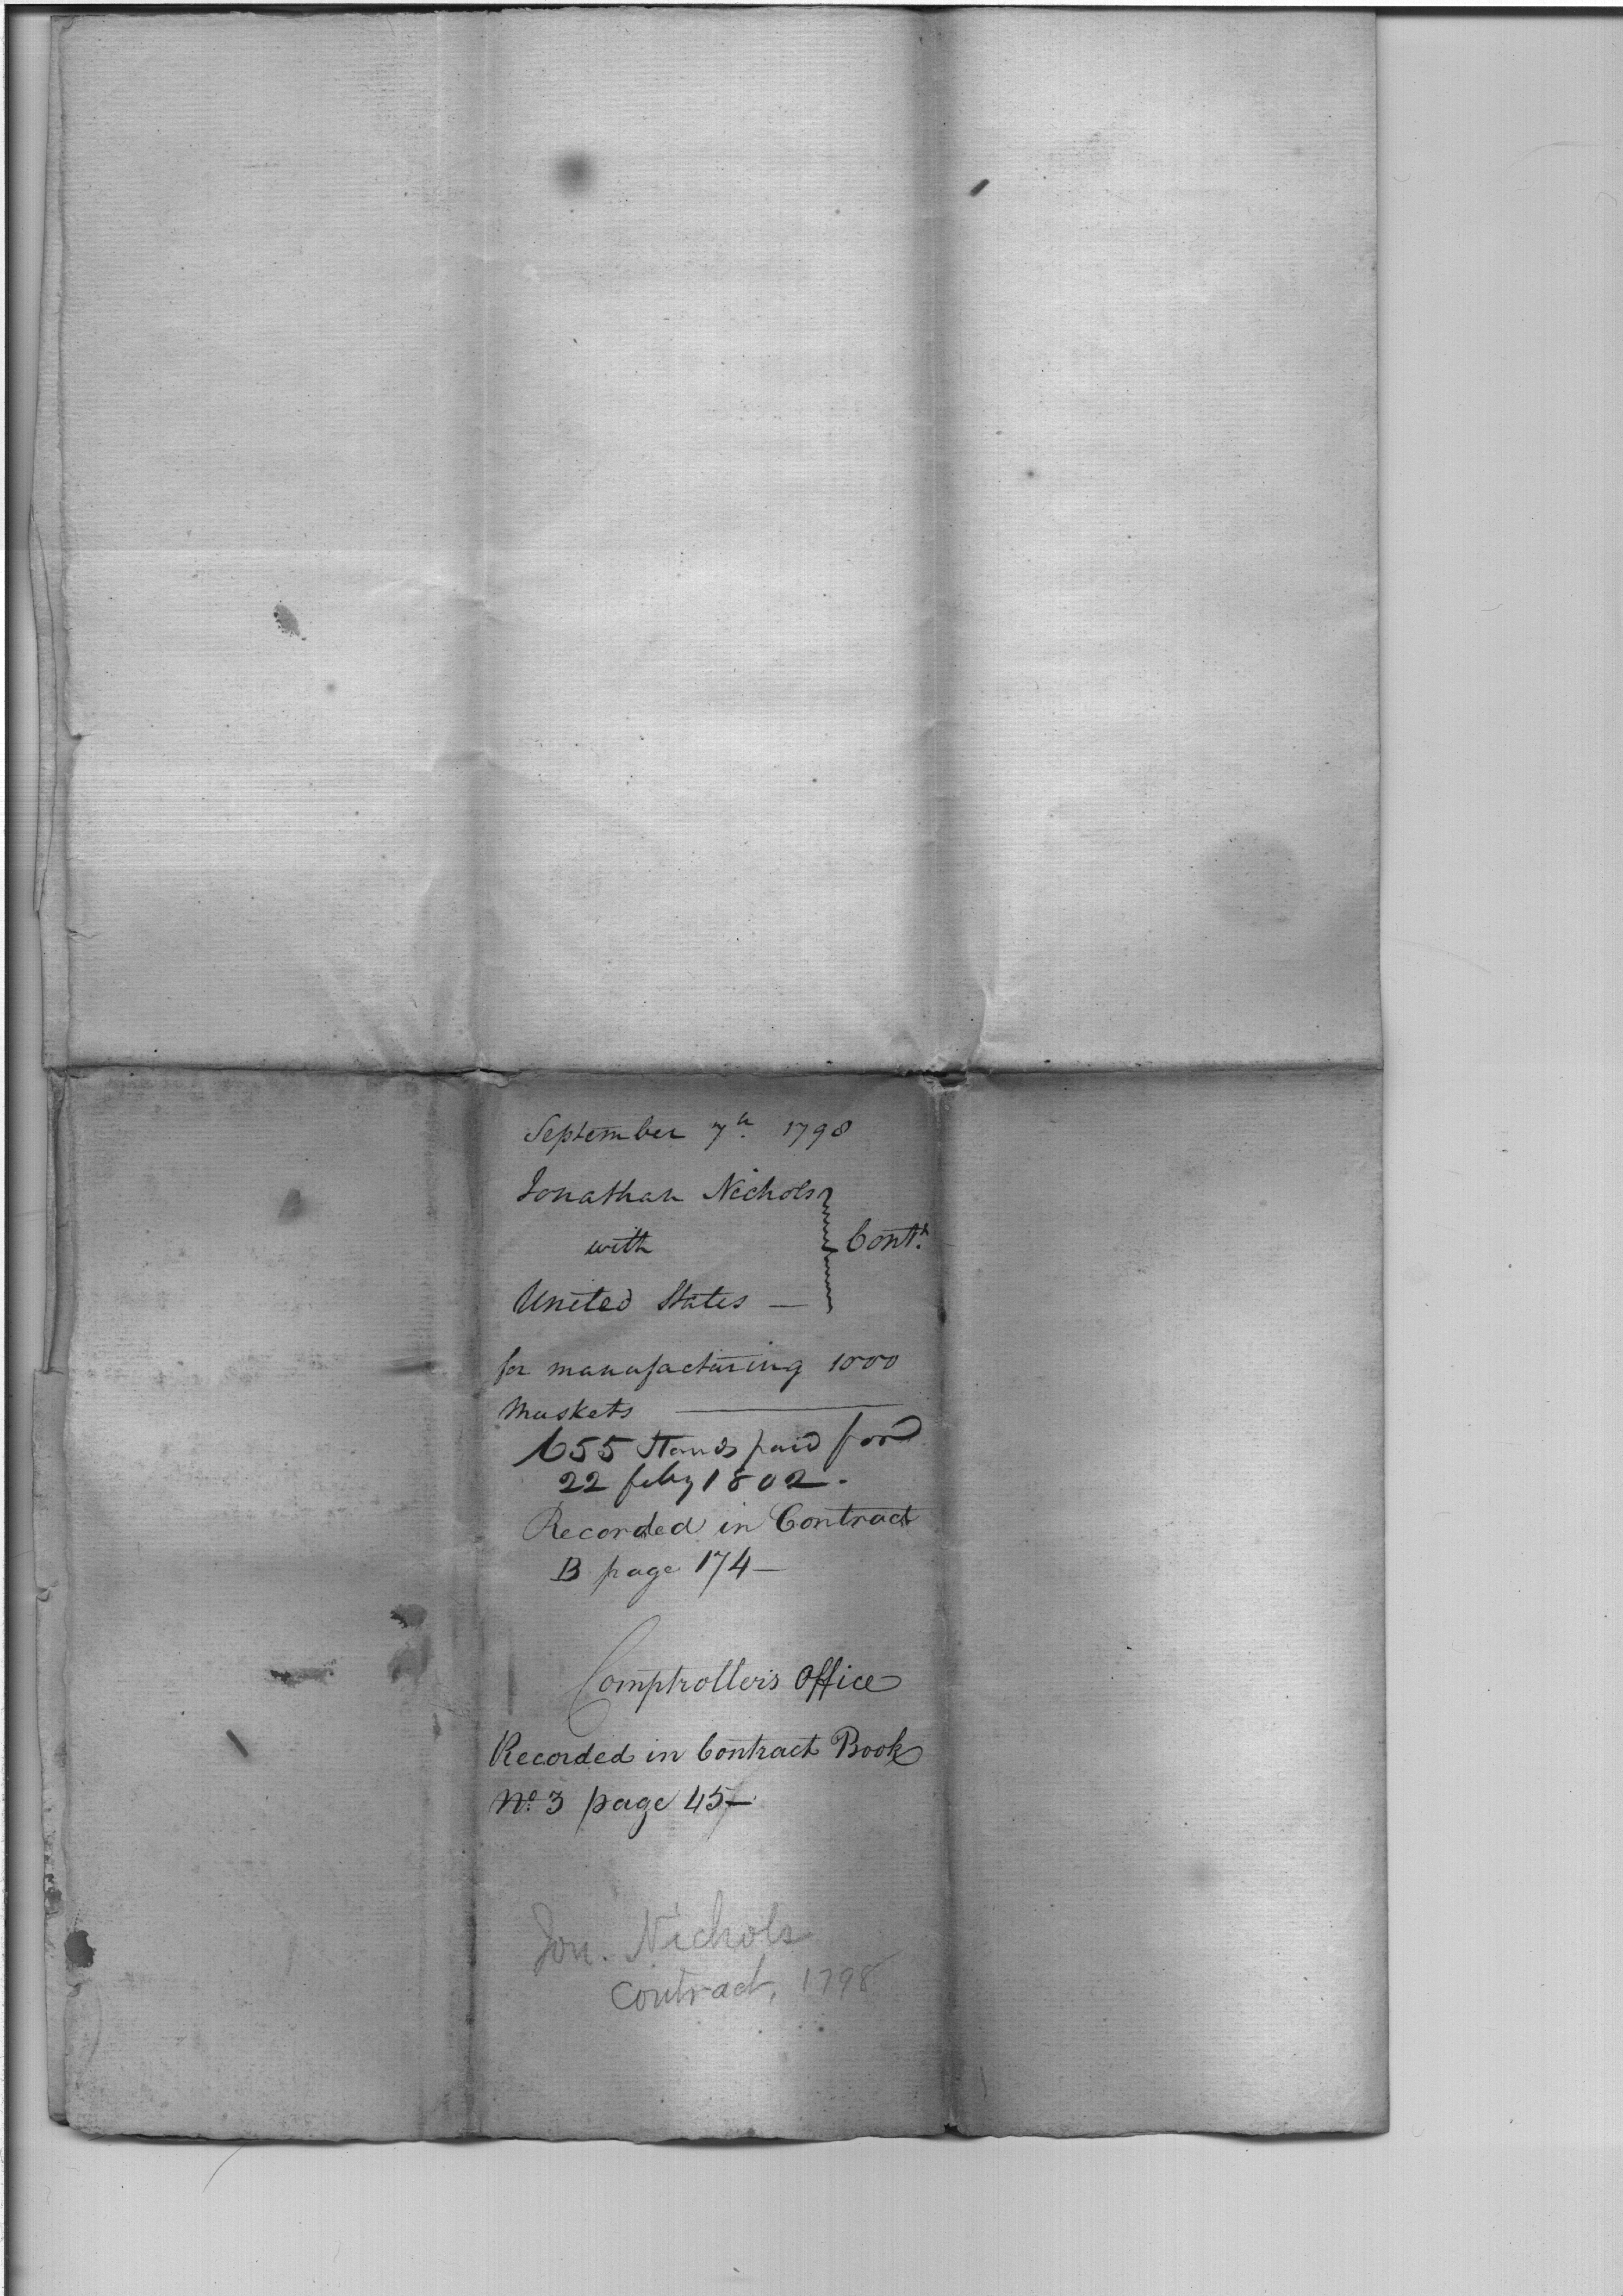 September 7th. 1798
Jonathan Nichols
with
Cont.
United States —
for manufacturing 1000
Muskets —
655 Stands paid for
22 feby 1802.
Recorded in Contract
B page 174 —
Comptroller's Office
Recorded in Contract Book
No. 3 page 45 —
Jon. Nichols
Contract, 1798